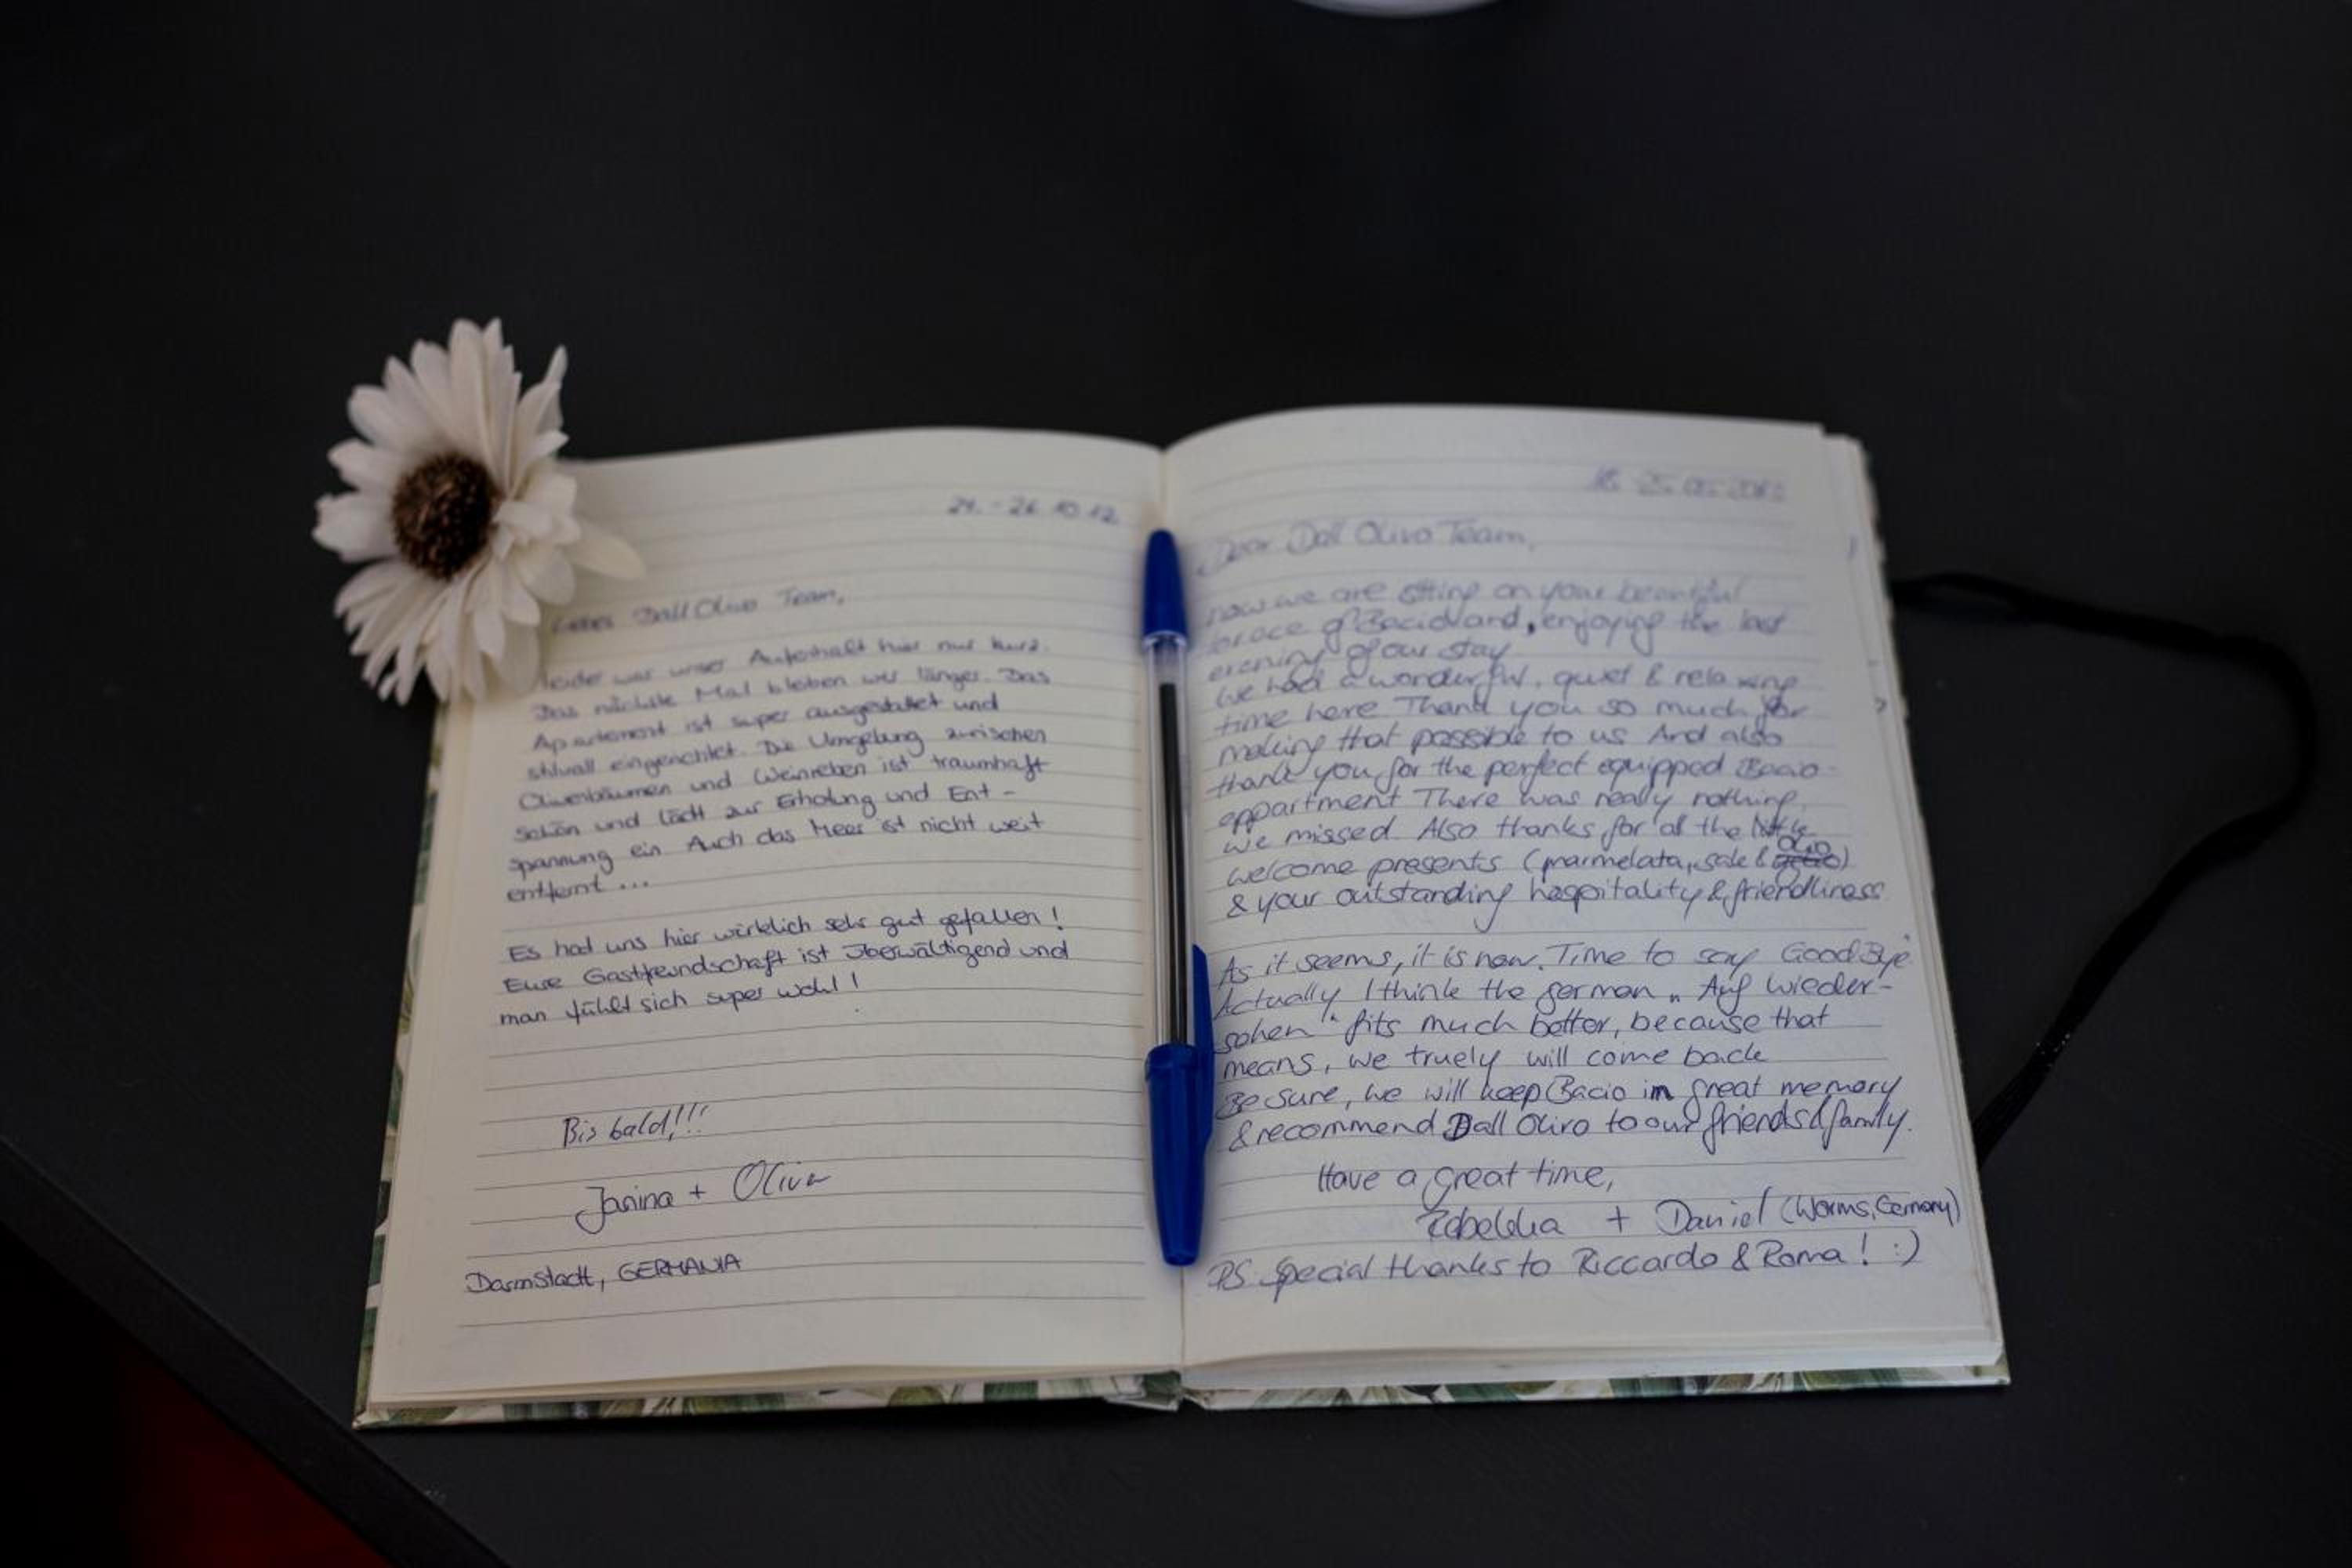 24. - 26. 10. 12.
Liebes Dall Olivo Team,
leider war unser Aufenthalt hier nur kurz.
Das nächste Mal bleiben wir länger. Das
Apartement ist super ausgestattet und
stilvoll eingerichtet. Die Umgebung zwischen
Olivenbäumen und Weinreben ist traumhaft
schön und lädt zur Erholung und Ent-
spannung ein. Auch das Meer ist nicht weit
entfernt ...
Es had uns hier wirklich sehr gut gefallen!
Eure Gastfreundschaft ist überwältigend und
man fühlt sich super wohl!
Bis bald!!!
Janina + Oliver
Darmstadt, GERMANIA
Dear Dall Olivo Team,
now we are sitting on your beautiful
terace of Bacio and, enjoying the last
evening of our stay
We had a wonderful, quiet & relaxing
time here Thank you so much for
making that possible to us And also
thank you for the perfect equipped Bacio-
appartment There was really nothing
we missed. Also thanks for al the little
welcome presents (marmelata, sale & olio)
& your outstanding hospitality & friendliness
As it seems, it is now. Time to say GoodBye
Actually I think the german „Auf Wieder-
sehen“ fits much better, because that
means, we truely will come back
Be sure, we will keep Bacio in great memory
& recommend Dall Olivo to our friends & family.
Have a great time,
Rebekka + Daniel (Worms, Germany)
PS Special thanks to Riccardo & Roma! :)